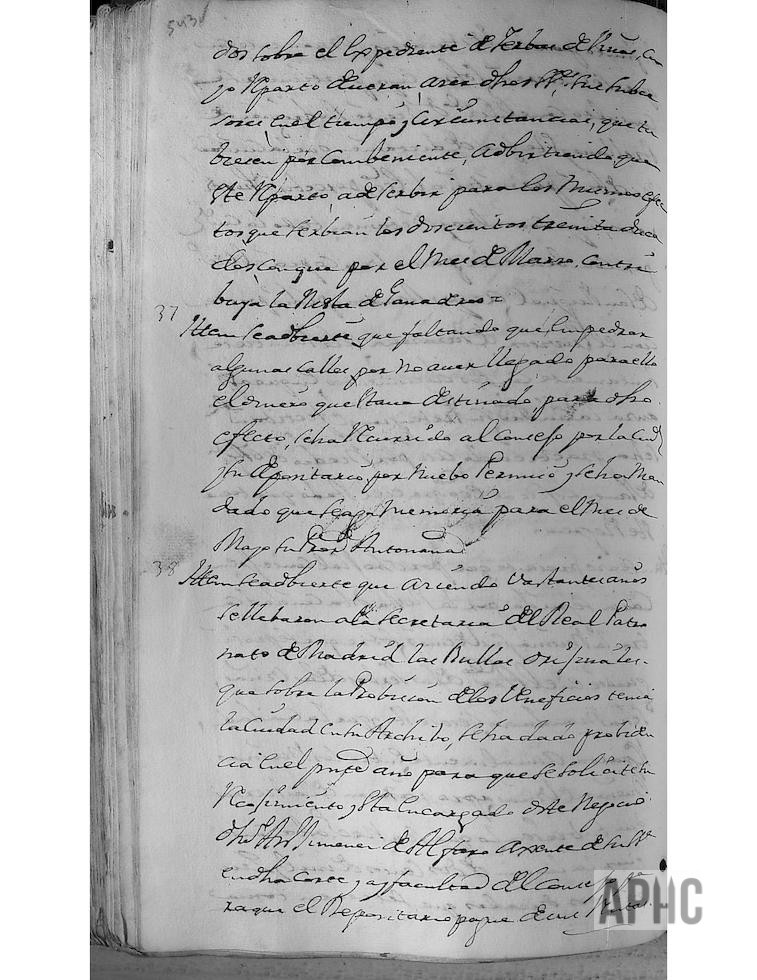 543
dos sobre el Expediente de Yerbas de Viñas, Cu
yo Reparto deveran acer dhos SSes sus subce
sores en el tiempo y Circunstancias, que tu
biesen por Combeniente, adbirtiendo que
este Reparto, a de serbir para los mismos efec
tos que serbian los doscientos treinta duca
dos con que por el Mes de Marzo, Contri
buya la Mesta de Ganaderos=
37 Ittem se adbierte que faltando que empedrar
algunas calles por no aver llegado para ello
el dinero que estava destinado para dho
efecto, se ha Recurrido al Consejo por la Ciud
y su depositario por Nuebo Permiso y se ha Man
dado que se aga memoria para el Mes de
Mayo
38 Ittem se adbierte que aciendo bastantes años
se llebaron a la Secretaria del Real Patro
nato de Madrid las Bullas originales
que sobre la Probision de los Beneficios tenia
la Ciudad en su Archibo, se ha dado probiden
cia en el pnte año para que se solicite su
Recojimiento y esta encargado de este Negocio
Dn Ximenez de Alfaro Ajente de
en dha Corte, y ay facultad del Consejo pa
ra que el Depositario pague
APHC